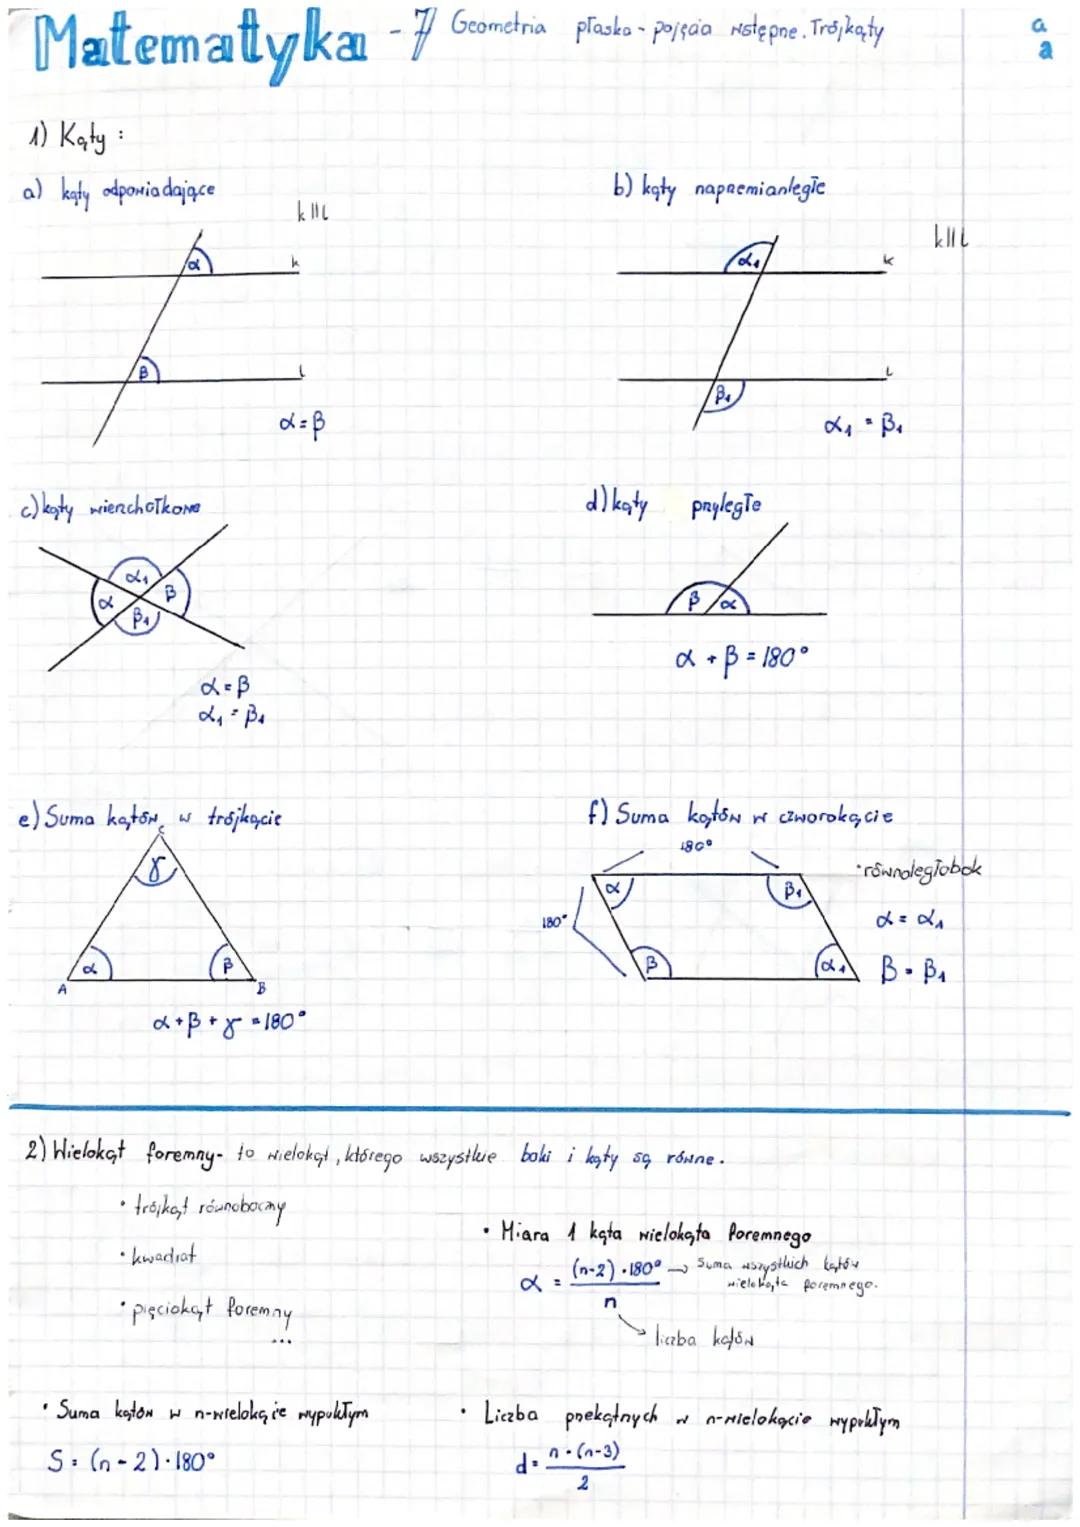 Matematyka - 7 Geometria płaska - pojęcia wstępne. Trójkąty
a
a
1) Kąty :
a) kąty odpowiadające
k || l
α
k
β
l
α = β
b) kąty naprzemianległe
k || l
α₁
k
β₁
l
α₁ = β₁
c) kąty wierzchołkowe
α₁
α
β
β₁
α = β
α₁ = β₁
d) kąty przyległe
β
α
α + β = 180°
e) Suma kątów w trójkącie
C
γ
α
β
A
B
α + β + γ = 180°
f) Suma kątów w czworokącie
180°
• równoległobok
α
β₁
180°
α = α₁
β
α₁
β = β₁
2) Wielokąt foremny - to wielokąt, którego wszystkie boki i kąty są równe.
• trójkąt równoboczny
• kwadrat
• pięciokąt foremny
...
• Miara 1 kąta wielokąta foremnego
α = (n-2) · 180° → Suma wszystkich kątów
wielokąta foremnego.
n
liczba kątów
• Suma kątów w n-wielokącie wypukłym
S = (n - 2) · 180°
• Liczba przekątnych w n-wielokącie wypukłym
d = n · (n-3)
2